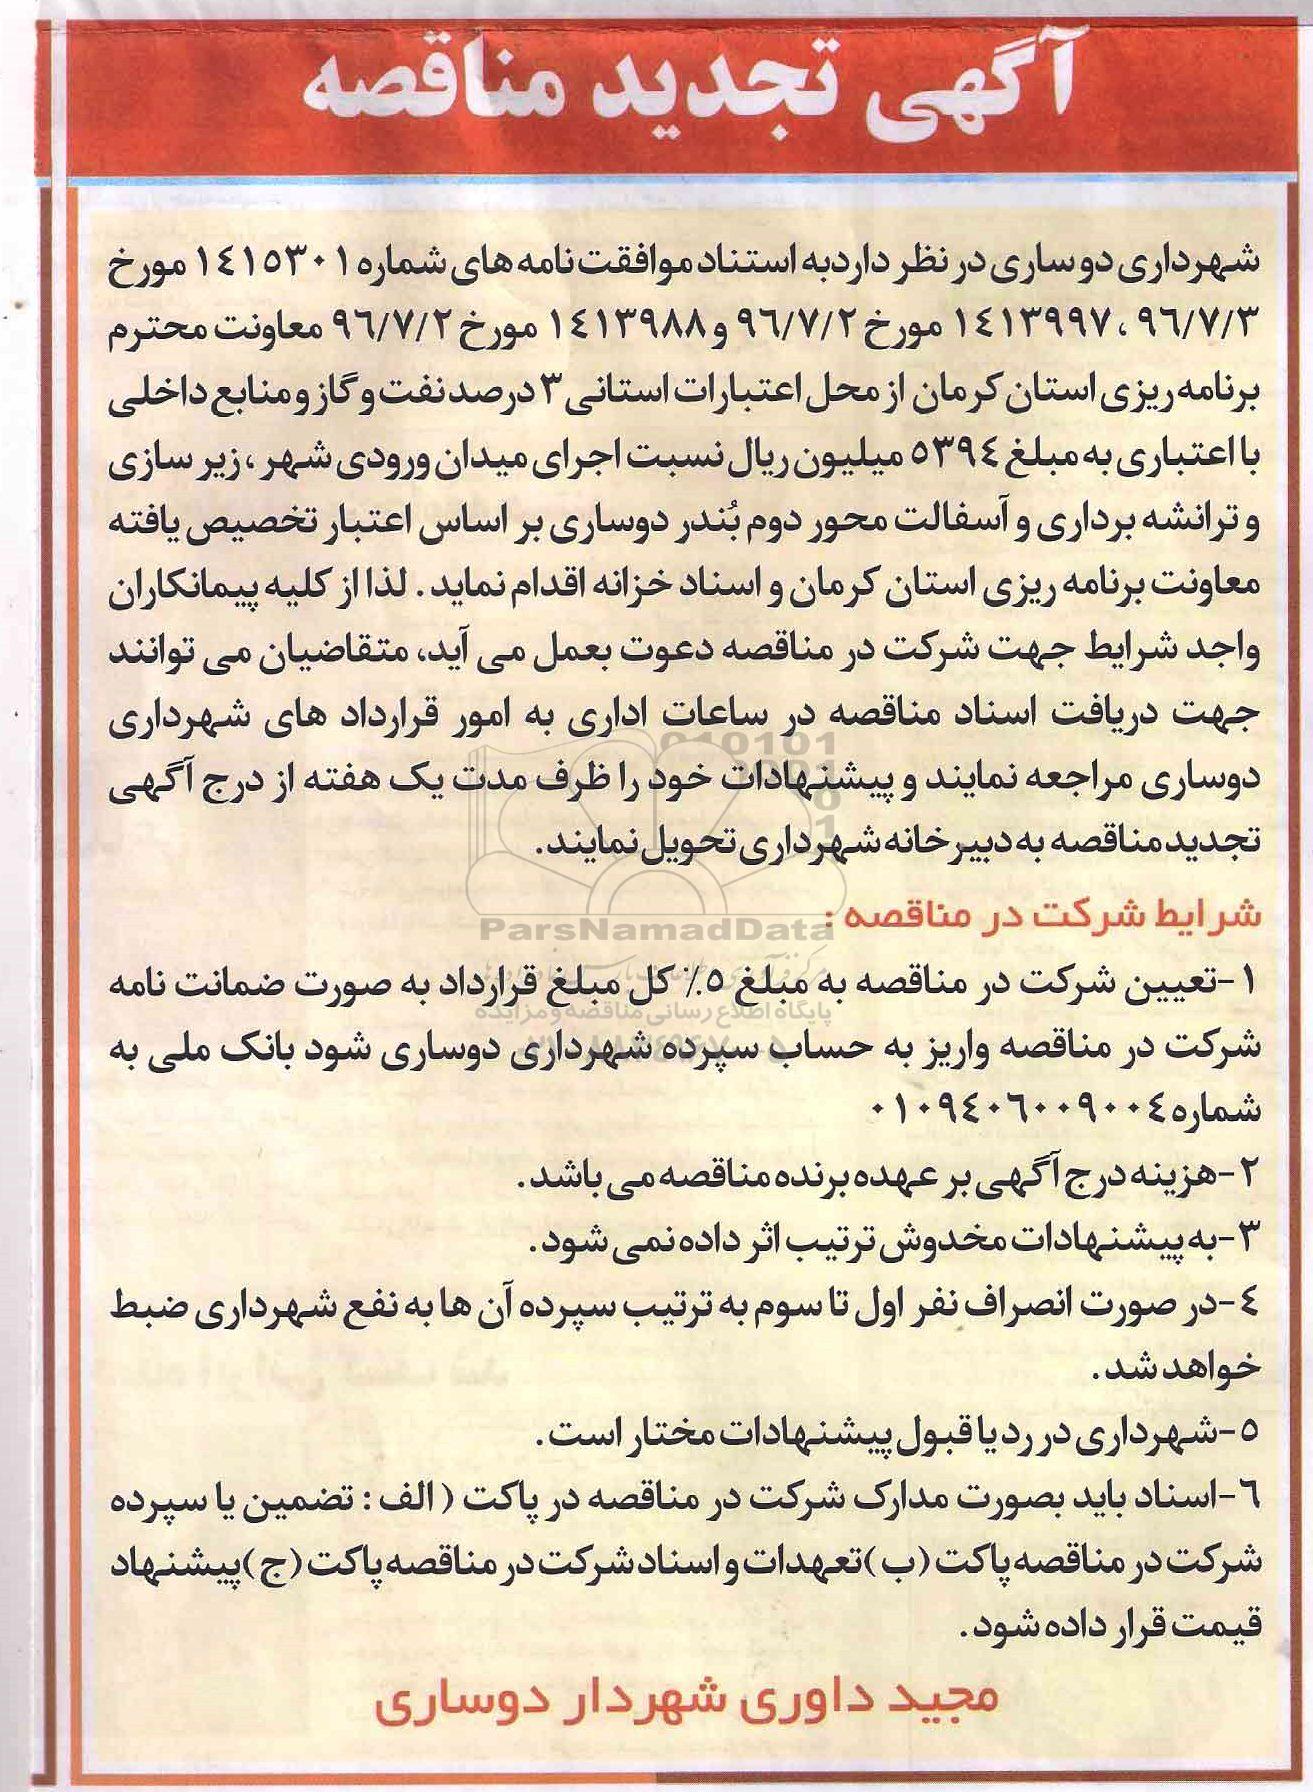 آگهی تجدید مناقصه
شهرداری دوساری در نظر داردبه استناد موافقت نامه های شماره ۱٤۱٥۳۰۱ مورخ
۹٦/۷/۳ ، ۱٤۱۳۹۹۷ مورخ ۹٦/۷/۲ و ۱٤۱۳۹۸۸ مورخ ۹٦/۷/۲ معاونت محترم
برنامه ریزی استان کرمان از محل اعتبارات استانی ۳ درصد نفت و گاز و منابع داخلی
با اعتباری به مبلغ ٥۳۹٤ میلیون ریال نسبت اجرای میدان ورودی شهر ، زیر سازی
و ترانشه برداری و آسفالت محور دوم بُندر دوساری بر اساس اعتبار تخصیص یافته
معاونت برنامه ریزی استان کرمان و اسناد خزانه اقدام نماید . لذا از کلیه پیمانکاران
واجد شرایط جهت شرکت در مناقصه دعوت بعمل می آید، متقاضیان می توانند
جهت دریافت اسناد مناقصه در ساعات اداری به امور قرارداد های شهرداری
دوساری مراجعه نمایند و پیشنهادات خود را ظرف مدت یک هفته از درج آگهی
تجدید مناقصه به دبیرخانه شهرداری تحویل نمایند.
شرایط شرکت در مناقصه :
ParsNamadData
۱-تعیین شرکت در مناقصه به مبلغ ٥٪ کل مبلغ قرارداد به صورت ضمانت نامه
پایگاه اطلاع رسانی مناقصه و مزایده
شرکت در مناقصه واریز به حساب سپرده شهرداری دوساری شود بانک ملی به
شماره ۰۱۰۹٤۰٦۰۰۹۰۰٤
۲-هزینه درج آگهی بر عهده برنده مناقصه می باشد.
۳-به پیشنهادات مخدوش ترتیب اثر داده نمی شود.
٤-در صورت انصراف نفر اول تا سوم به ترتیب سپرده آن ها به نفع شهرداری ضبط
خواهد شد.
٥-شهرداری در رد یا قبول پیشنهادات مختار است.
٦-اسناد باید بصورت مدارک شرکت در مناقصه در پاکت ( الف : تضمین یا سپرده
شرکت در مناقصه پاکت (ب) تعهدات و اسناد شرکت در مناقصه پاکت (ج) پیشنهاد
قیمت قرار داده شود.
مجید داوری شهردار دوساری